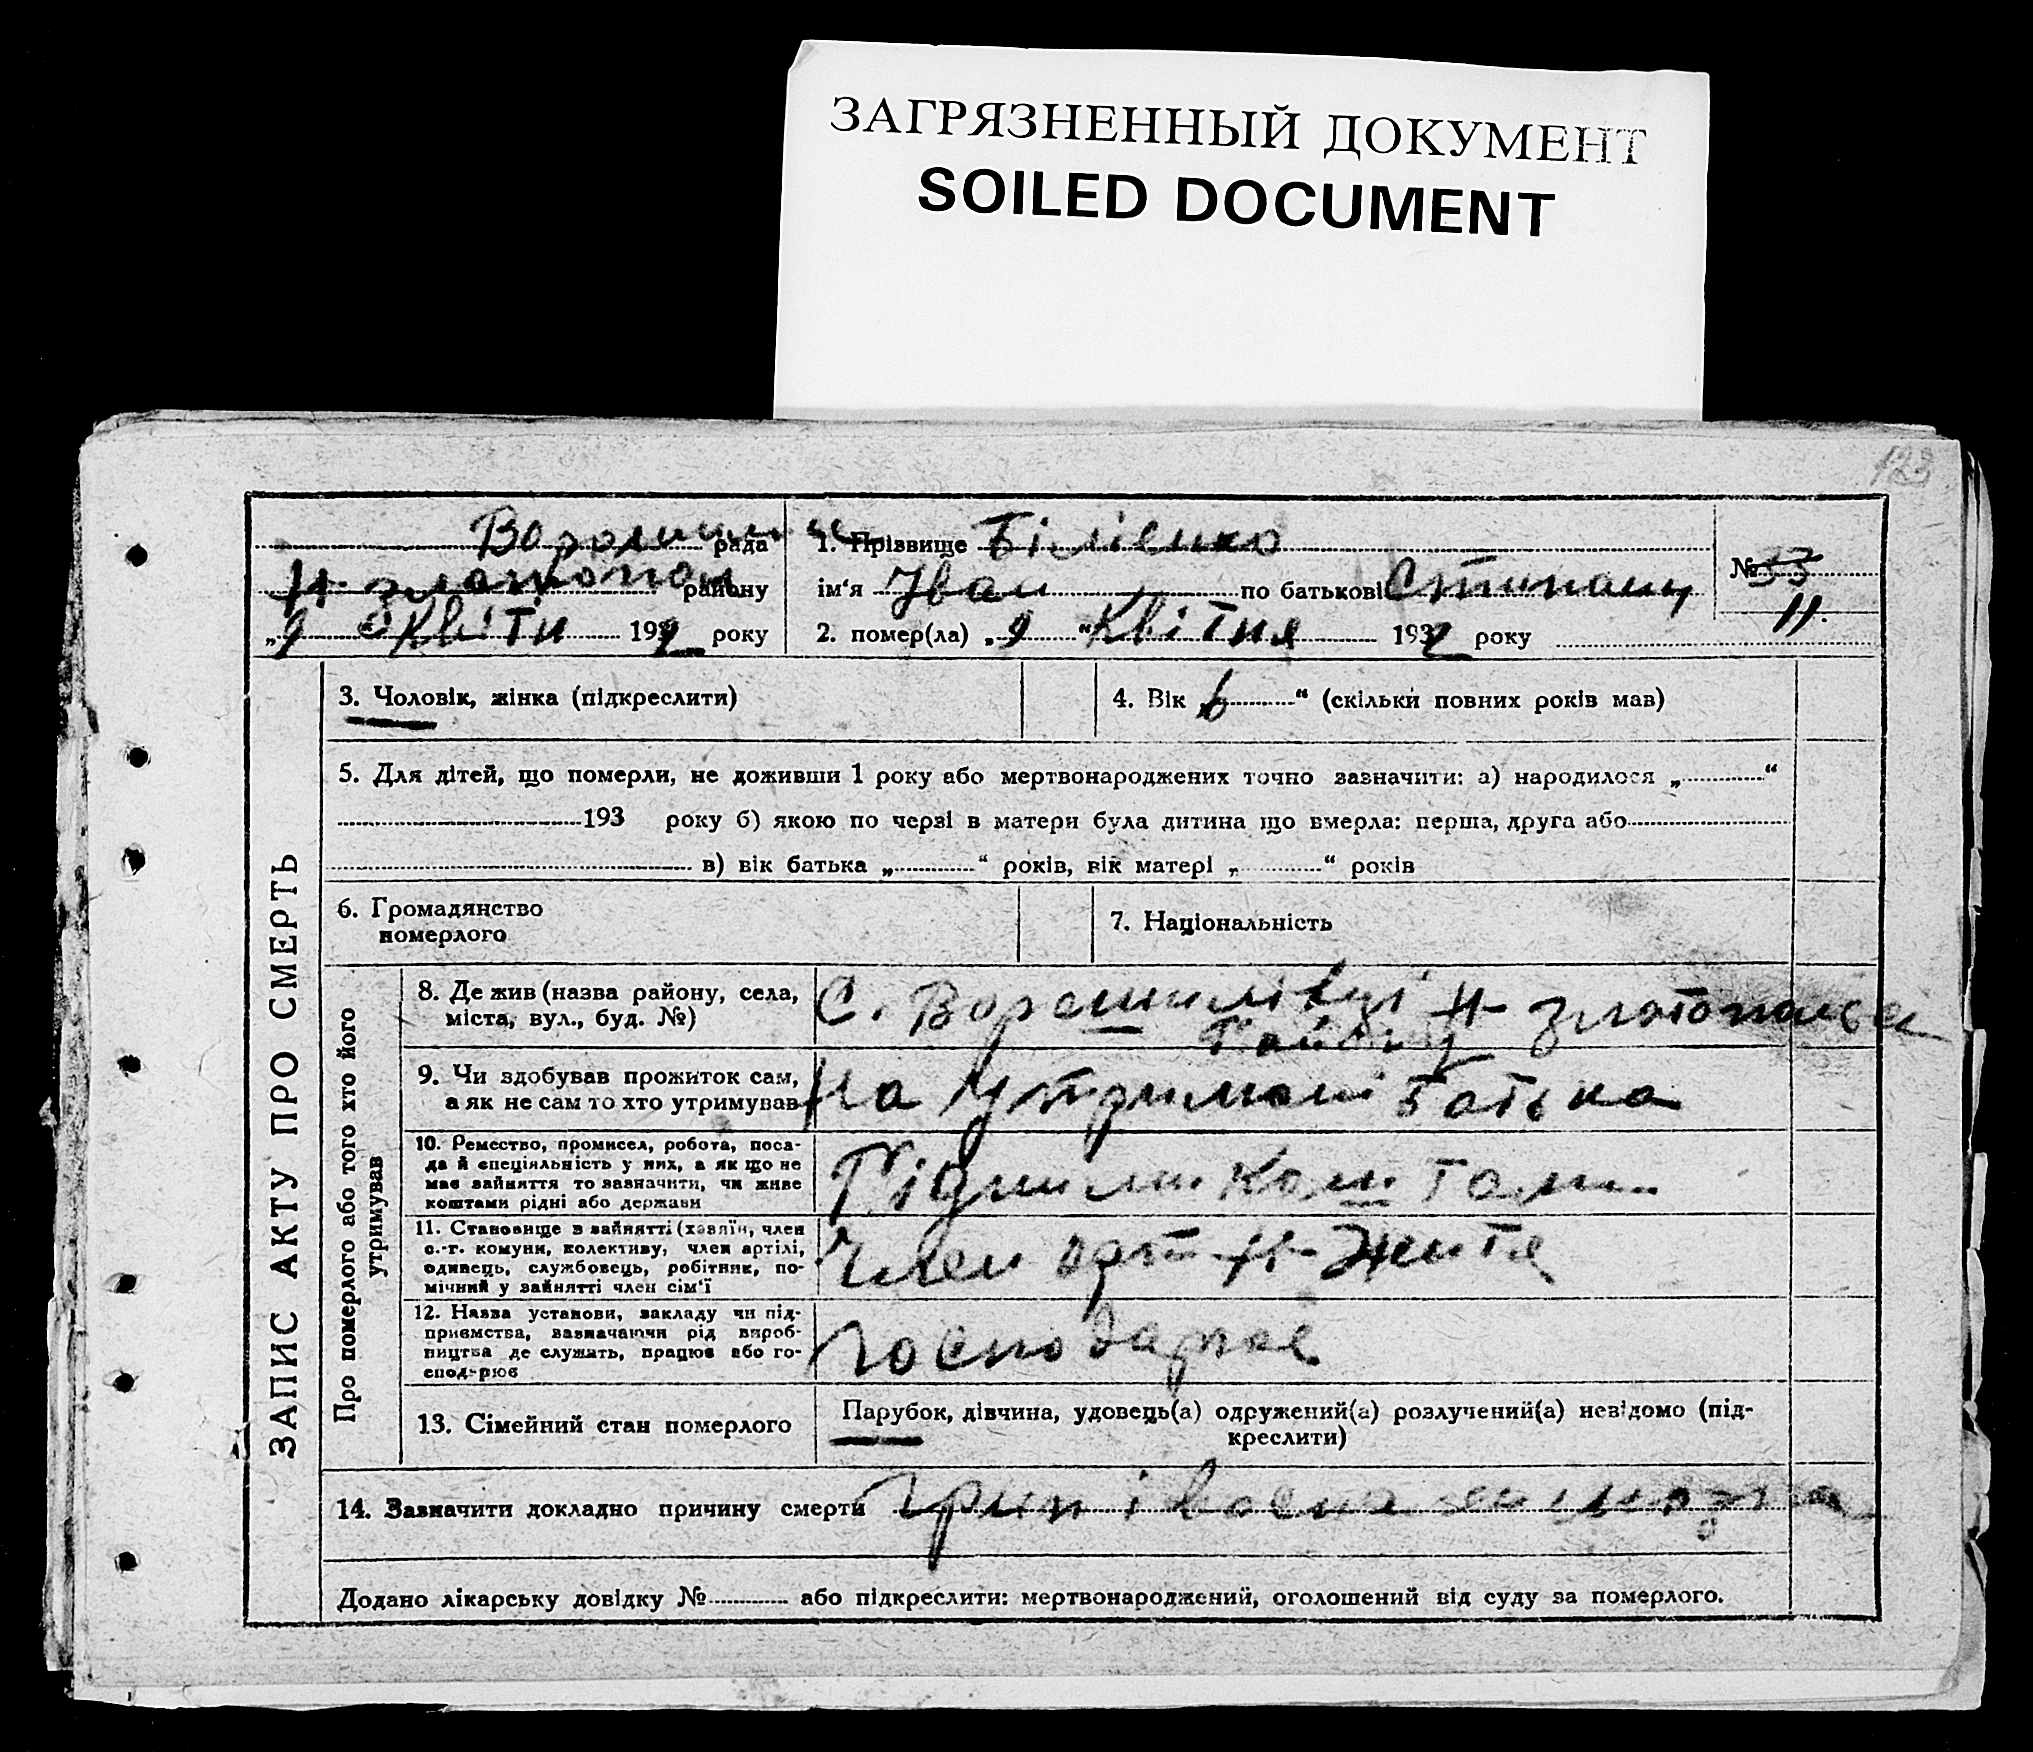 ЗАГРЯЗНЕННЫЙ ДОКУМЕНТ
SOILED DOCUMENT
123
рада
району
„9“ Квітн 1932 року
1. Прізвище
ім‘я Іван по батькові
2. помер(ла) „9“ Квітня 1932 року
№ 33
11.
ЗАПИС АКТУ ПРО СМЕРТЬ
3. Чоловік, жінка (підкреслити)
4. Вік 6 “ (скільки повних років мав)
5. Для дітей, що померли, не доживши 1 року або мертвонароджених точно зазначити: а) народилося „ “
193 року б) якою по черзі в матери була дитина що вмерла: перша, друга або
в) вік батька „ “ років, вік матері „ “ років
6. Громадянство
померлого
7. Національність
Про померлого або того хто його
утримував
8. Де жив (назва району, села,
міста, вул., буд. №)
С. Ворошилівці Н-
9. Чи здобував прожиток сам,
а як не сам то хто утримував
На утримані батька
10. Ремество, промисел, робота, поса-
да й спеціяльність у них, а як що не
має зайняття то зазначити, чи живе
коштами рідні або держави
Рідними Коштами
11. Становище в зайнятті (хазяїн, член
с.-г. комуни, колективу, член артілі,
одинець, службовець, робітник, по-
мічний у зайнятті член сім‘ї
Член арт Н- Життя
12. Назва установи, закладу чи під-
приємства, зазначаючи рід вироб-
ництва де служить, працює або го-
спод-рює
13. Сімейний стан померлого
Парубок, дівчина, удовець(а) одружений(а) розлучений(а) невідомо (під-
креслити)
14. Зазначити докладно причину смерти
Додано лікарську довідку № або підкреслити: мертвонароджений, оголошений від суду за померлого.